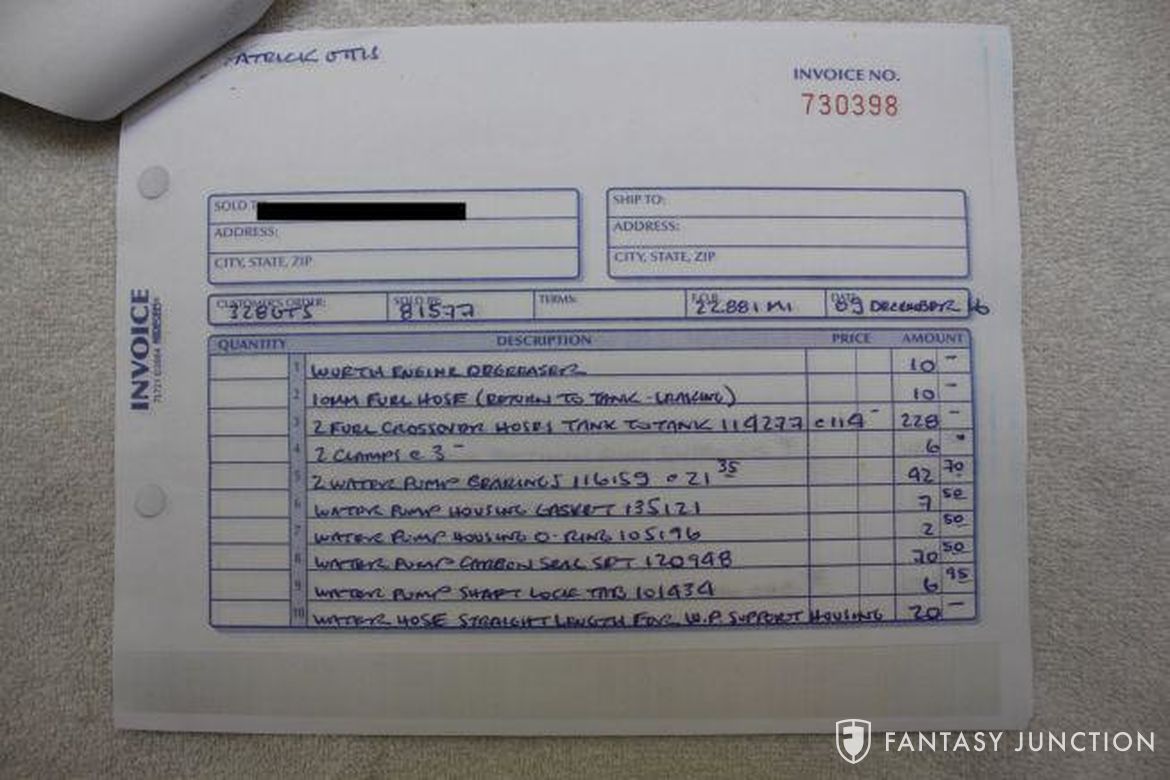 PATRICK OTTIS
INVOICE NO.
730398
SOLD T
SHIP TO:
ADDRESS:
ADDRESS:
CITY, STATE, ZIP
CITY, STATE, ZIP
CUSTOMER'S ORDER: SOLD BY: TERMS: F.O.B. DATE:
328GTS 81577 22.881 MI 09 DECEMBER 16
QUANTITY DESCRIPTION PRICE AMOUNT
1 WURTH ENGINE DEGREASER 10 –
2 10MM FUEL HOSE (RETURN TO TANK - LEAKING) 10 –
3 2 FUEL CROSSOVER HOSES TANK TO TANK 114277 @ 114 – 228 –
4 2 CLAMPS @ 3 – 6 –
5 2 WATER PUMP BEARINGS 116159 @ 21 35 42 70
6 WATER PUMP HOUSING GASKET 135121 7 50
7 WATER PUMP HOUSING O-RING 105196 2 50
8 WATER PUMP CARBON SEAL SET 120948 70 50
9 WATER PUMP SHAFT LOCK TAB 101434 6 95
10 WATER HOSE STRAIGHT LENGTH FOR W.P SUPPORT HOUSING 20 –
INVOICE
FANTASY JUNCTION